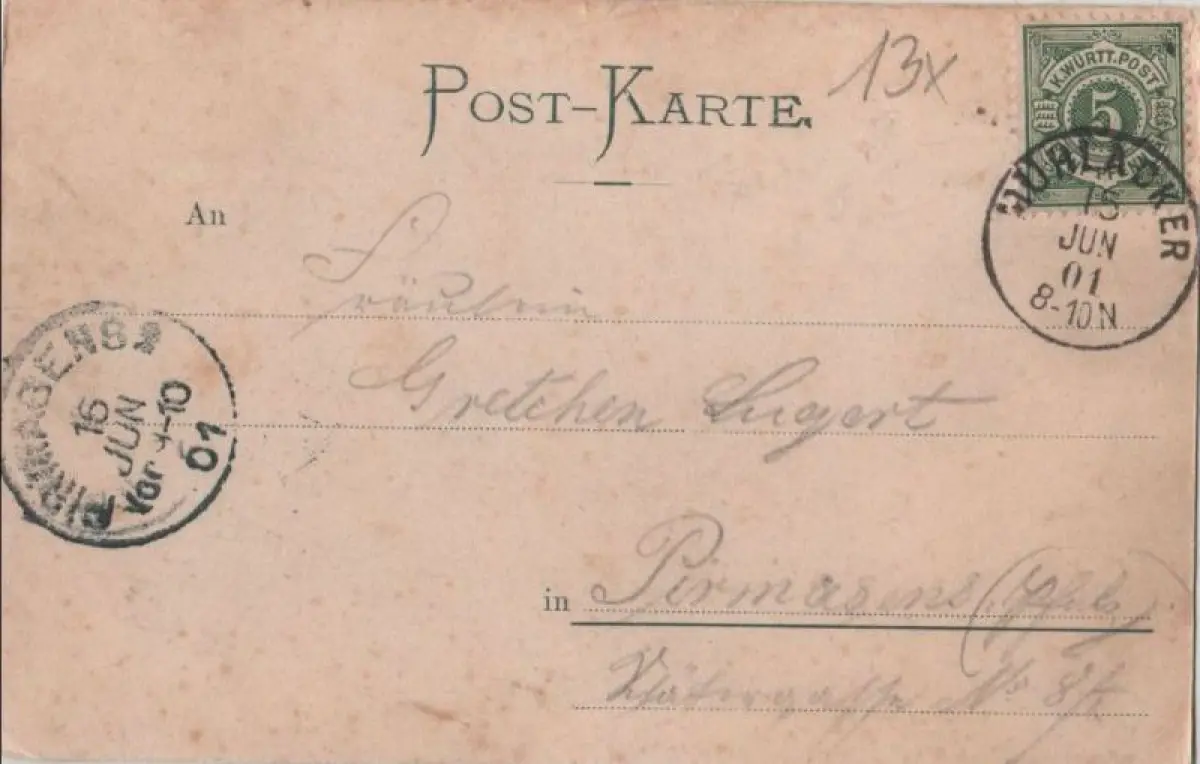 POST-KARTE.
13x
K. WÜRTT. POST
5
MÜHLACKER
15
JUN
01
8-10 N
An
Fräulein
Gretchen Lugert
PIRMASENS 2
16
JUN
Vor 9-10
01
in Pirmasens (Pfalz)
No 8½